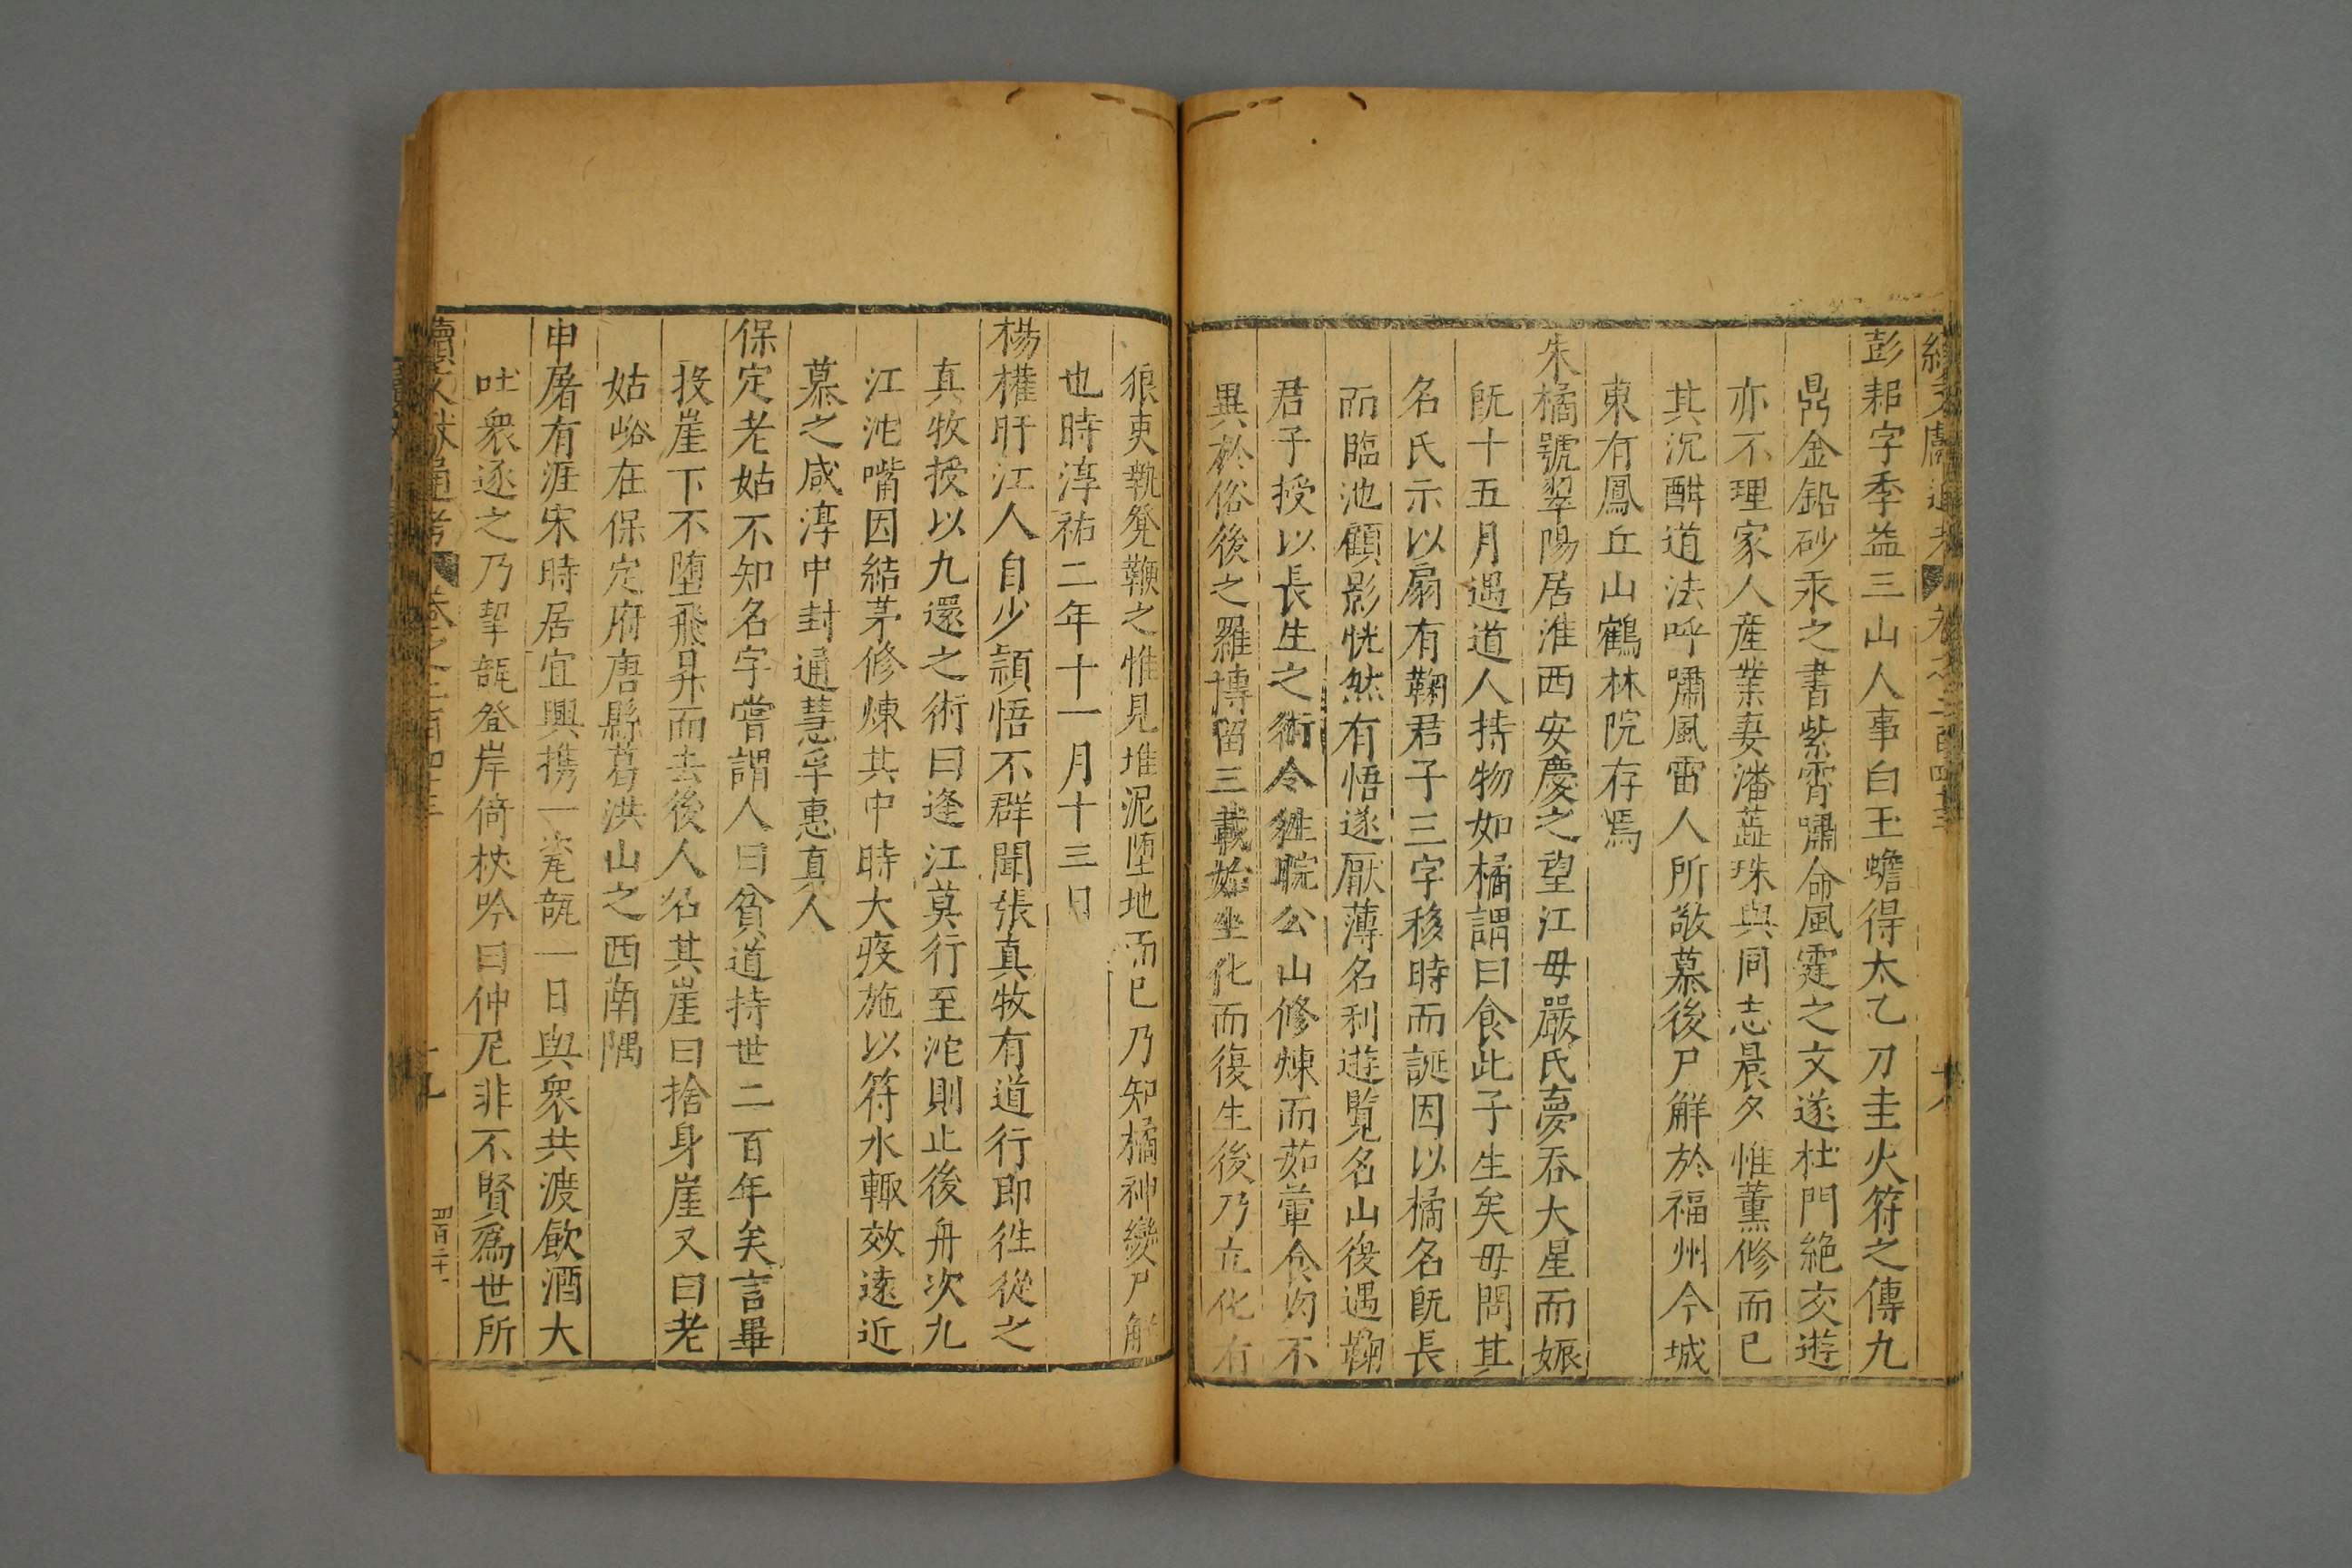 續文獻通考 卷之二百四十三 十八
彭耜字季益三山人事白玉蟾得太乙刀圭火符之傳九
鼎金鉛砂汞之書紫霄嘯命風霆之文遂杜門絶交遊
亦不理家人産業妻潘蕋珠與同志晨夕惟薰修而已
其沉酣道法呼嘯風雷人所敬慕後尸解於福州今城
東有鳳丘山鶴林院存焉
朱橘號翠陽居淮西安慶之望江母嚴氏夢吞大星而娠
既十五月遇道人持物如橘謂曰食此子生矣母問其
名氏示以扇有鞠君子三字移時而誕因以橘名既長
而臨池顧影恍然有悟遂厭薄名利遊覧名山後遇鞠
君子授以長生之術令徃睆公山修煉而茹葷食肉不
異於俗後之羅博留三載始坐化而復生後乃立化有
狼吏執凳鞭之惟見堆泥墮地而已乃知橘神變尸解
也時淳祐二年十一月十三日
楊權盱江人自少頴悟不群聞張真牧有道行即徃從之
真牧授以九還之術曰逢江莫行至沱則止後舟次九
江沱嘴因結茅修煉其中時大疫施以符水輙效遠近
慕之咸淳中封通慧孚惠真人
保定老姑不知名字嘗謂人曰貧道持世二百年矣言畢
投崖下不墮飛昇而去後人名其崖曰捨身崖又曰老
姑峪在保定府唐縣葛洪山之西南隅
申屠有涯宋時居宜興携一瓷瓿一日與衆共渡飲酒大
吐衆逐之乃挈瓿登岸倚杖吟曰仲尼非不賢爲世所
續文獻通考 卷之二百四十三 十九 四百二十